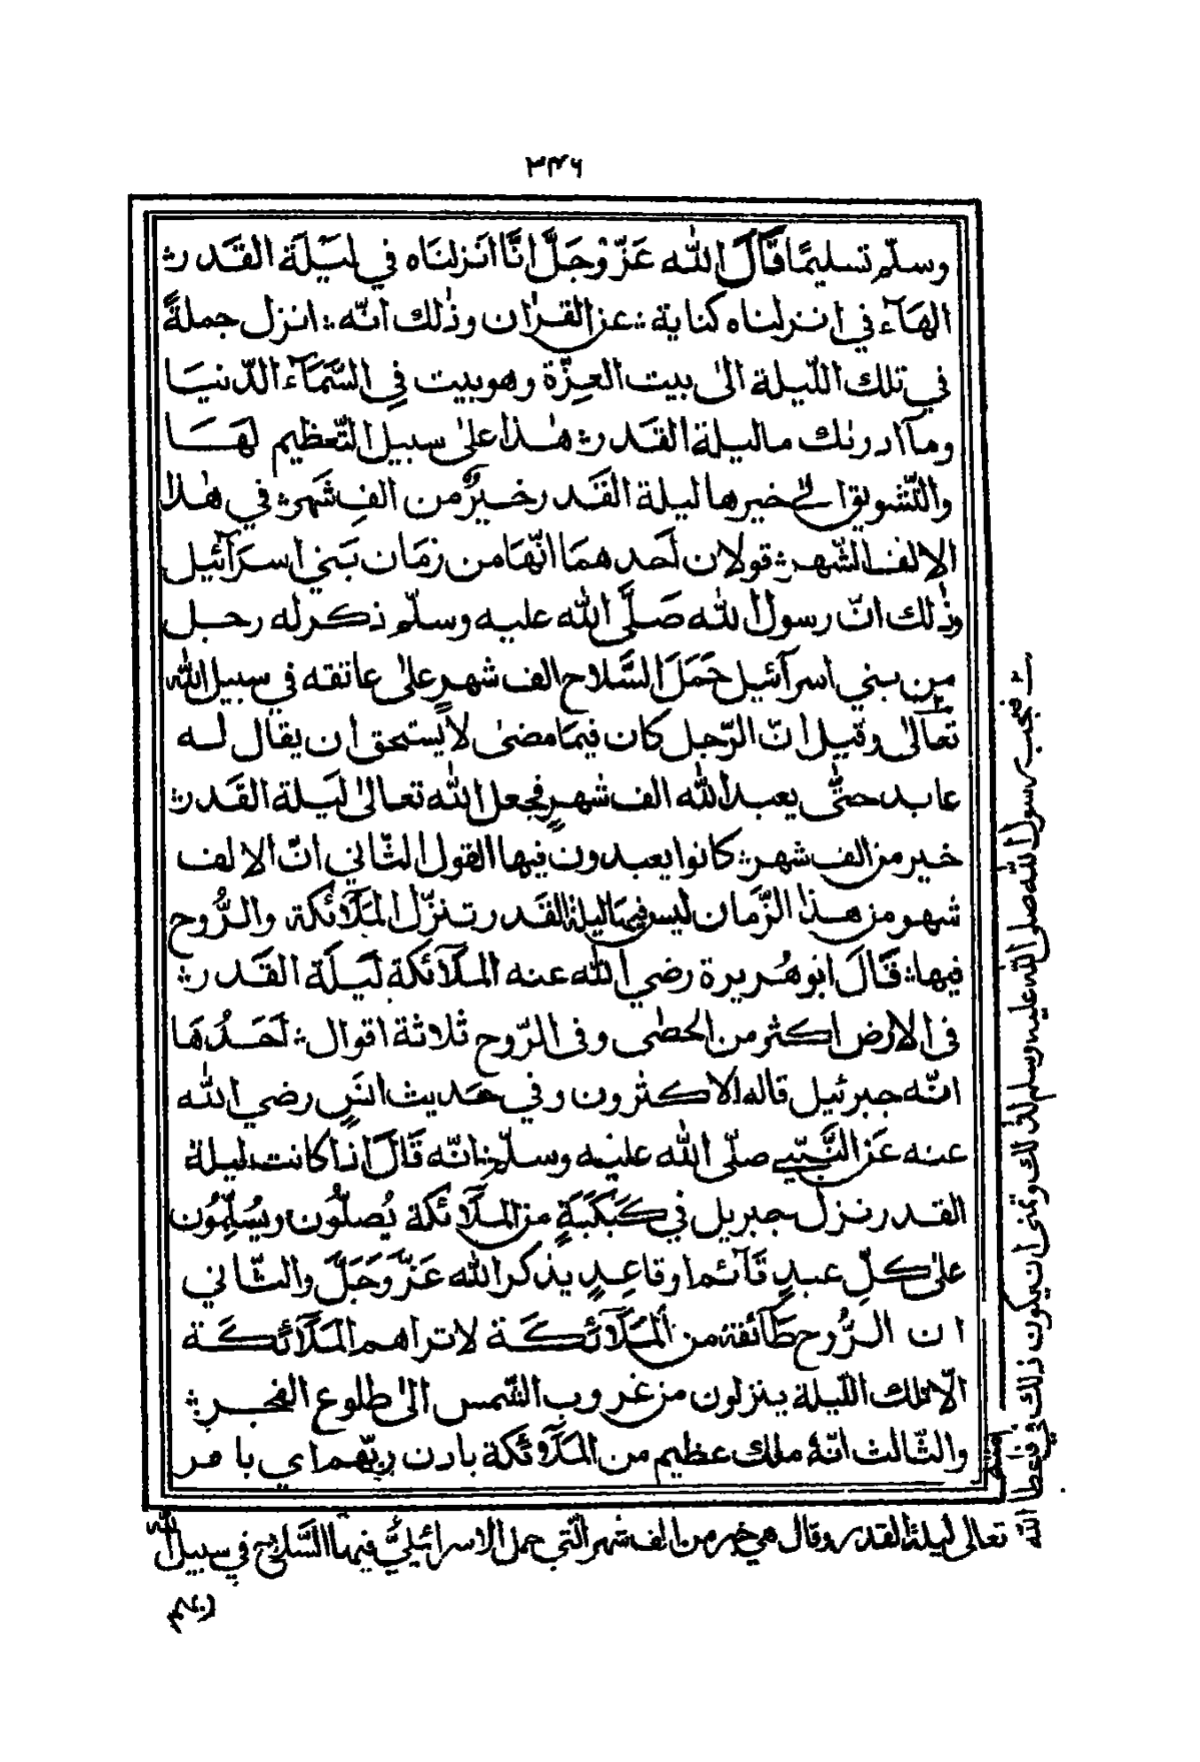 ۳۴۶
وسلّم تسليمًا قَالَ الله عَزّ وْجَلَّ انَّا انَزلنَاه في لَيْلَة القَدر ؞
الهَآء في انزلناه كناية ؞ عن القرٰان وذٰلك انّه ؞ انزل جملةً
في تلك اللّيلة الىٰ بيت العِزّة وهو بيت فِي السَّمَآء الدّنيَا
ومآ ادرٰىك ما ليلة القَدر ؞ هٰذا علىٰ سبيل التّعظيم لهَا
والتّشويق الىٰ خيرها ليلة القَدر خيرٌ من الفِ شَهر ؞ في هٰذا
الالف الشّهر ؞ قولان اَحدهمَا انّهَا من زمَان بَني اسرَآئيل
وذٰلك انّ رسول الله صَلَّى الله عليه وسلّم ذكر له رجل
مِن بني اسرآئيل حَمَلَ السَّلاح الف شهرٍ علىٰ عاتقه في سبيل الله
تعَالىٰ وقيل انّ الرّجل كان فيمَا مضىٰ لا يستحق ان يقال له
عابد حتّٰى يعبد الله الف شهرٍ فجعل الله تعالىٰ لَيلة القَدر ؞
خير من الف شهر ؞ كانوا يعبدون فيها القول الثّاني انّ الالف
شهر من هذا الزّمان ليس فيهَا ليلة القَدر تنزّل المَلَآئكة والرُّوح
فيها ؞ قَالَ ابو هُريرة رضي الله عنه الملآئكة لَيلَة القَدر ؞
في الارض اكثر من الحصٰى وفى الرّوح ثلاثة اقوال ؞ اَحَدُهَا
انّه جبرئيل قاله الاكثرون وفي حَديث انسٍ رضي الله
عنه عَن النَّبّي صلّى الله عليه وسلّم انّه قَالَ اذا كانت ليلة
القدر نزل جبريل في كَبْكَبَةٍ من المَلَآئكة يُصلّون ويُسَلِّمُون
علىٰ كلِّ عبدٍ قآئما وقاعِدٍ يذكر الله عَزّ وَجَلَّ والثّاني
ان الرُّوح طَآئفة من المَلَآئكَة لا تراهم المَلَآئكَة
الّا تلك اللّيلة ينزلون من غروب الشّمس الىٰ طلوع الفجر ؞
والثّالث انّهٗ ملك عظيم من المَلَآئكة باذن ربّهم اي بامر
ت فعجب رسول الله صلى الله عليه وسلم لذلك وتمنى ان يكون ذلك في امته فاعطا الله
تعالى ليلة القدر وقال هي خير من الف شهر الّتي حمل الاسرائيليّ فيها السّلاح في سبيل الله
ربهم